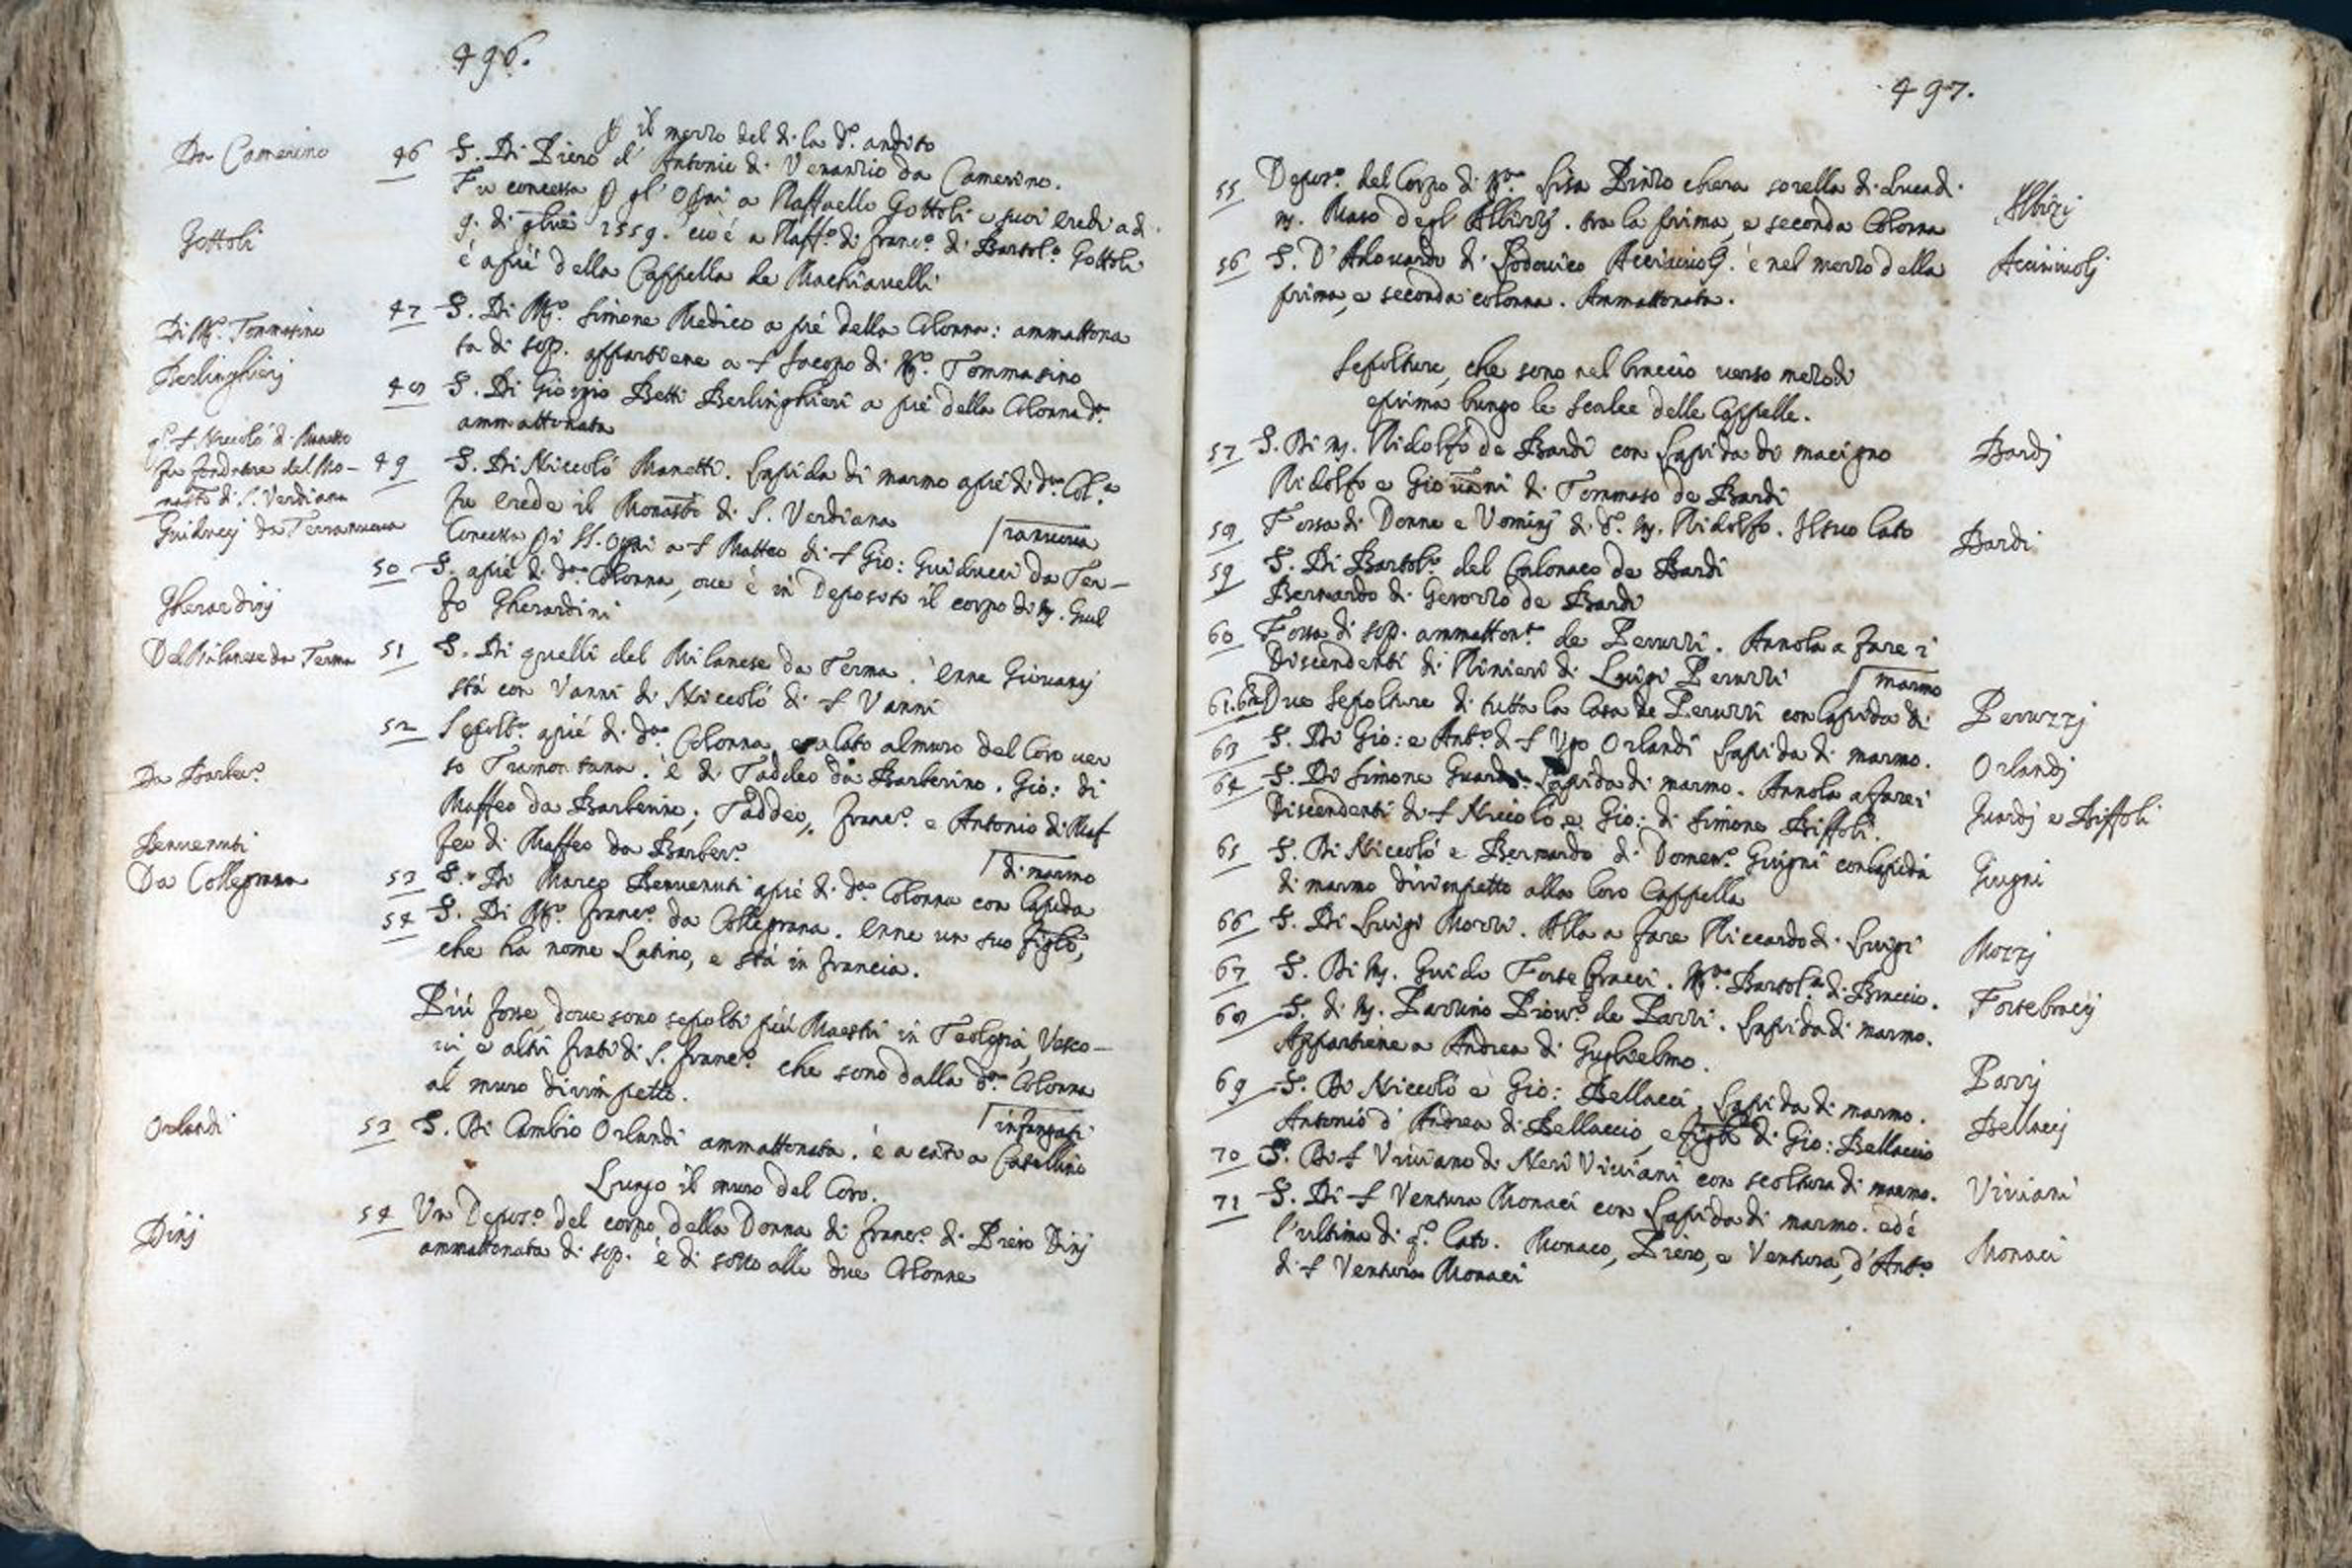 496.
p il mezzo del di la d.º andito
Da Camerino
46 S. Di Piero d' Antonio di Venanzio da Camerino.
Fu concessa p gl' Op̃ai a Raffaello Gottoli e suoi eredi ad.
Gottoli
9. di 1559. cio è a Raff.º di Franc.º di Bartol.º Gottoli
è apiè della Cappella de Machiavelli
47 S. Di M.º Simone Medico a piè della Colonna: ammattona
Di M.º Tommasino
ta di sop. appartiene a S Jacopo di M.º Tommasino
Berlinghierj
48 S. Di Giorgio Betti Berlinghieri a piè della Colonna d.ª
ammattonata
q.º S Niccolò di Manetto
fu fondatore del Mo-
nastº di S. Verdiana
49 S. Di Niccolò Manetti. Lapida di marmo apiè di d.ª Col.ª
fu erede il Monastº di S. Verdiana
Guiduccj da Terranuova
Concessa pi SS. Op̃ai a S Matteo di S Gio: Guiducci da Ter-
ranuova
50 S. apiè di d.ª Colonna, ove è in Deposito il corpo di M. Gual
Gherardinj
fo Gherardini
Del Milanese da Terma
51 S. Di quelli del Milanese da Terma. enne Giovannj
stà con Vanni di Niccolò di S Vanni
52 Sepolt.ª apiè di d.ª Colonna, e a lato al muro del Coro ver
so Tramontana. è di Taddeo da Barberino. Gio: di
Da Barber.º
Maffeo da Barberino; Taddeo, Franc.º e Antonio di Maf
feo di Maffeo da Barber.º
Benvenuti
53 S. Di Marco Benvenuti apiè di d.ª Colonna con lapida
di marmo
Da Collegrana
54 S. Di M.º Franc.º da Collegrana. enne un suo figlio,
che ha nome Latino, e stà in Francia.
Più fosse, dove sono sepolti più Maestri in Teologia, Vesco-
vi, e altri frati di S. Franc.º che sono dalla d.ª Colonna
al muro dirimpetto.
Orlandi
53 S. Di Cambio Orlandi ammattonata. è a cato a Catellino
infangati
Lungo il muro del Coro.
Dinj
54 Un Depos.º del corpo della Donna di Franc.º di Piero Dinj
ammattonata di sop. è di sotto alle due Colonne
497.
55 Depos.º del Corpo di M.ª Lisa Pinzochera sorella di Luca di
Albizj
M. Maso degl' Albizzj. tra la prima, e seconda Colonna
56 S. D' Adovardo di Lodovico Acciaiuolj. è nel mezzo della
Acciaiuolj
prima, e seconda colonna. Ammattonata.
Sepolture, che sono nel braccio verso mezodì
e prima lungo le scalee delle Cappelle.
57 S. Di M. Ridolfo de Bardi con lapida di macigno
Bardj
Ridolfo e Giovanni di Tommaso de Bardi
58 Fossa di Donne e Uominj di d.º M. Ridolfo. Il suo lato
Bardi
59 S. Di Bartol.º del Calonaco de Bardi
Bernardo di Gerozzo de Bardi
60 Fossa di sop. ammatton.ta de Peruzzi. Annola a fare i
Discendenti di Rinieri di Luigi Peruzzi
61.62 Due sepolture di tutta la Casa de Peruzzi con lapida di
marmo
Peruzzj
63 S. Di Gio: e Ant.º di S Ugo Orlandi lapida di marmo.
Orlandj
64 S. Di Simone Guardi. Lapida di marmo. Annola a fare i
Guardj e Biffoli
Discendenti di S Niccolò, e Gio: di Simone Biffoli.
65 S. Di Niccolò e Bernardo di Domen.º Giugni con lapida
Giugni
di marmo dirimpetto alla loro Cappella
66 S. Di Luigi Mozzi. Alla a fare Riccardo di Luigi
Mozzj
67 S. Di M. Guido Forte bracci. M.ª Bartol.ª di Braccio.
Fortebraccj
68 S. di M. Pazzino Piov.º de Pazzi. Lapida di marmo.
Appartiene a Andrea di Guglielmo.
Pazzj
69 S. Di Niccolò e Gio: Bellacci. Lapida di marmo.
Antonio d' Andrea di Bellaccio, e figli di Gio: Bellaccio
Bellaccj
70 S. Di S Viviano di Neri Viviani con scoltura di marmo.
Viviani
71 S. Di S Ventura Monaci con lapida di marmo. ed è
l'ultima di q.º lato. Monaco, Piero, e Ventura, d' Ant.º
Monaci
di S Ventura Monaci